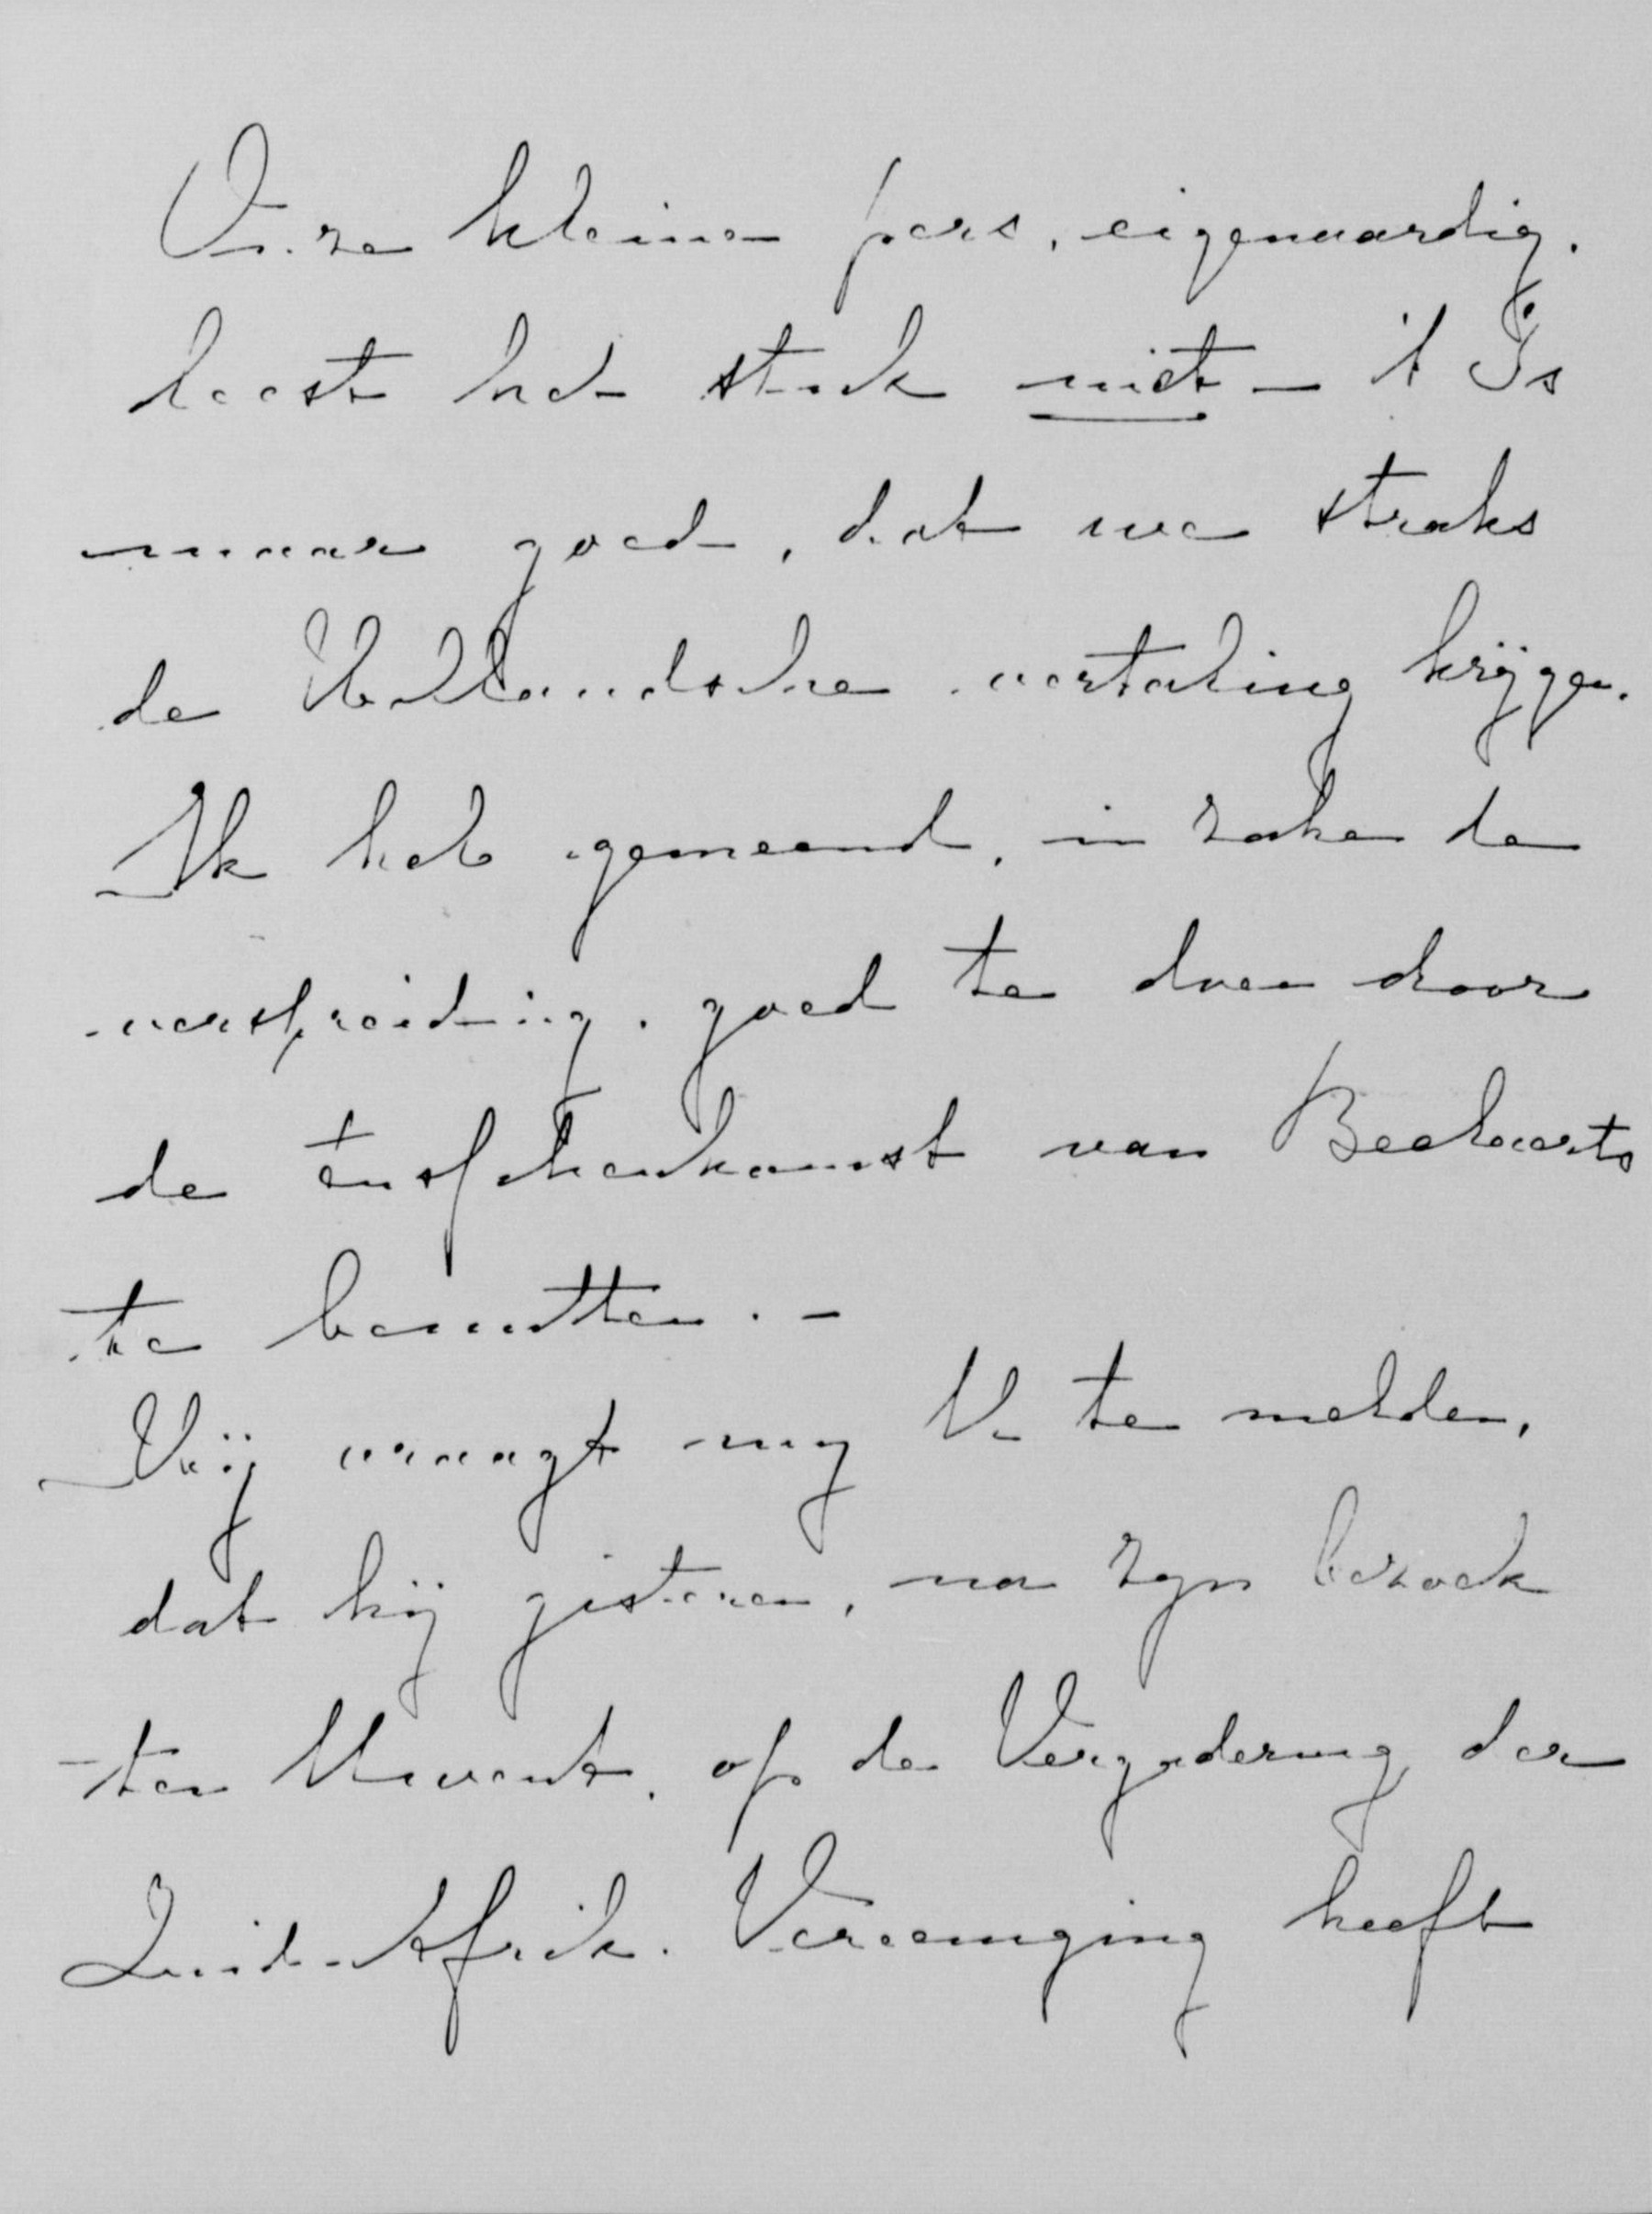 Onze kleine pers, eigenaardig,
leest het stuk niet — 't Is
maar goed, dat we straks
de Hollandsche vertaling krijgen.
Ik heb gemeend, in zake de
verspreiding, goed te doen door
de tusschenkomst van Beelaerts
te benutten. —
Hij vraagt mij U te melden,
dat hij gisteren, na zijn bezoek
ten Uwent, op de Vergadering der
Zuid-Afrik. Vereeniging heeft